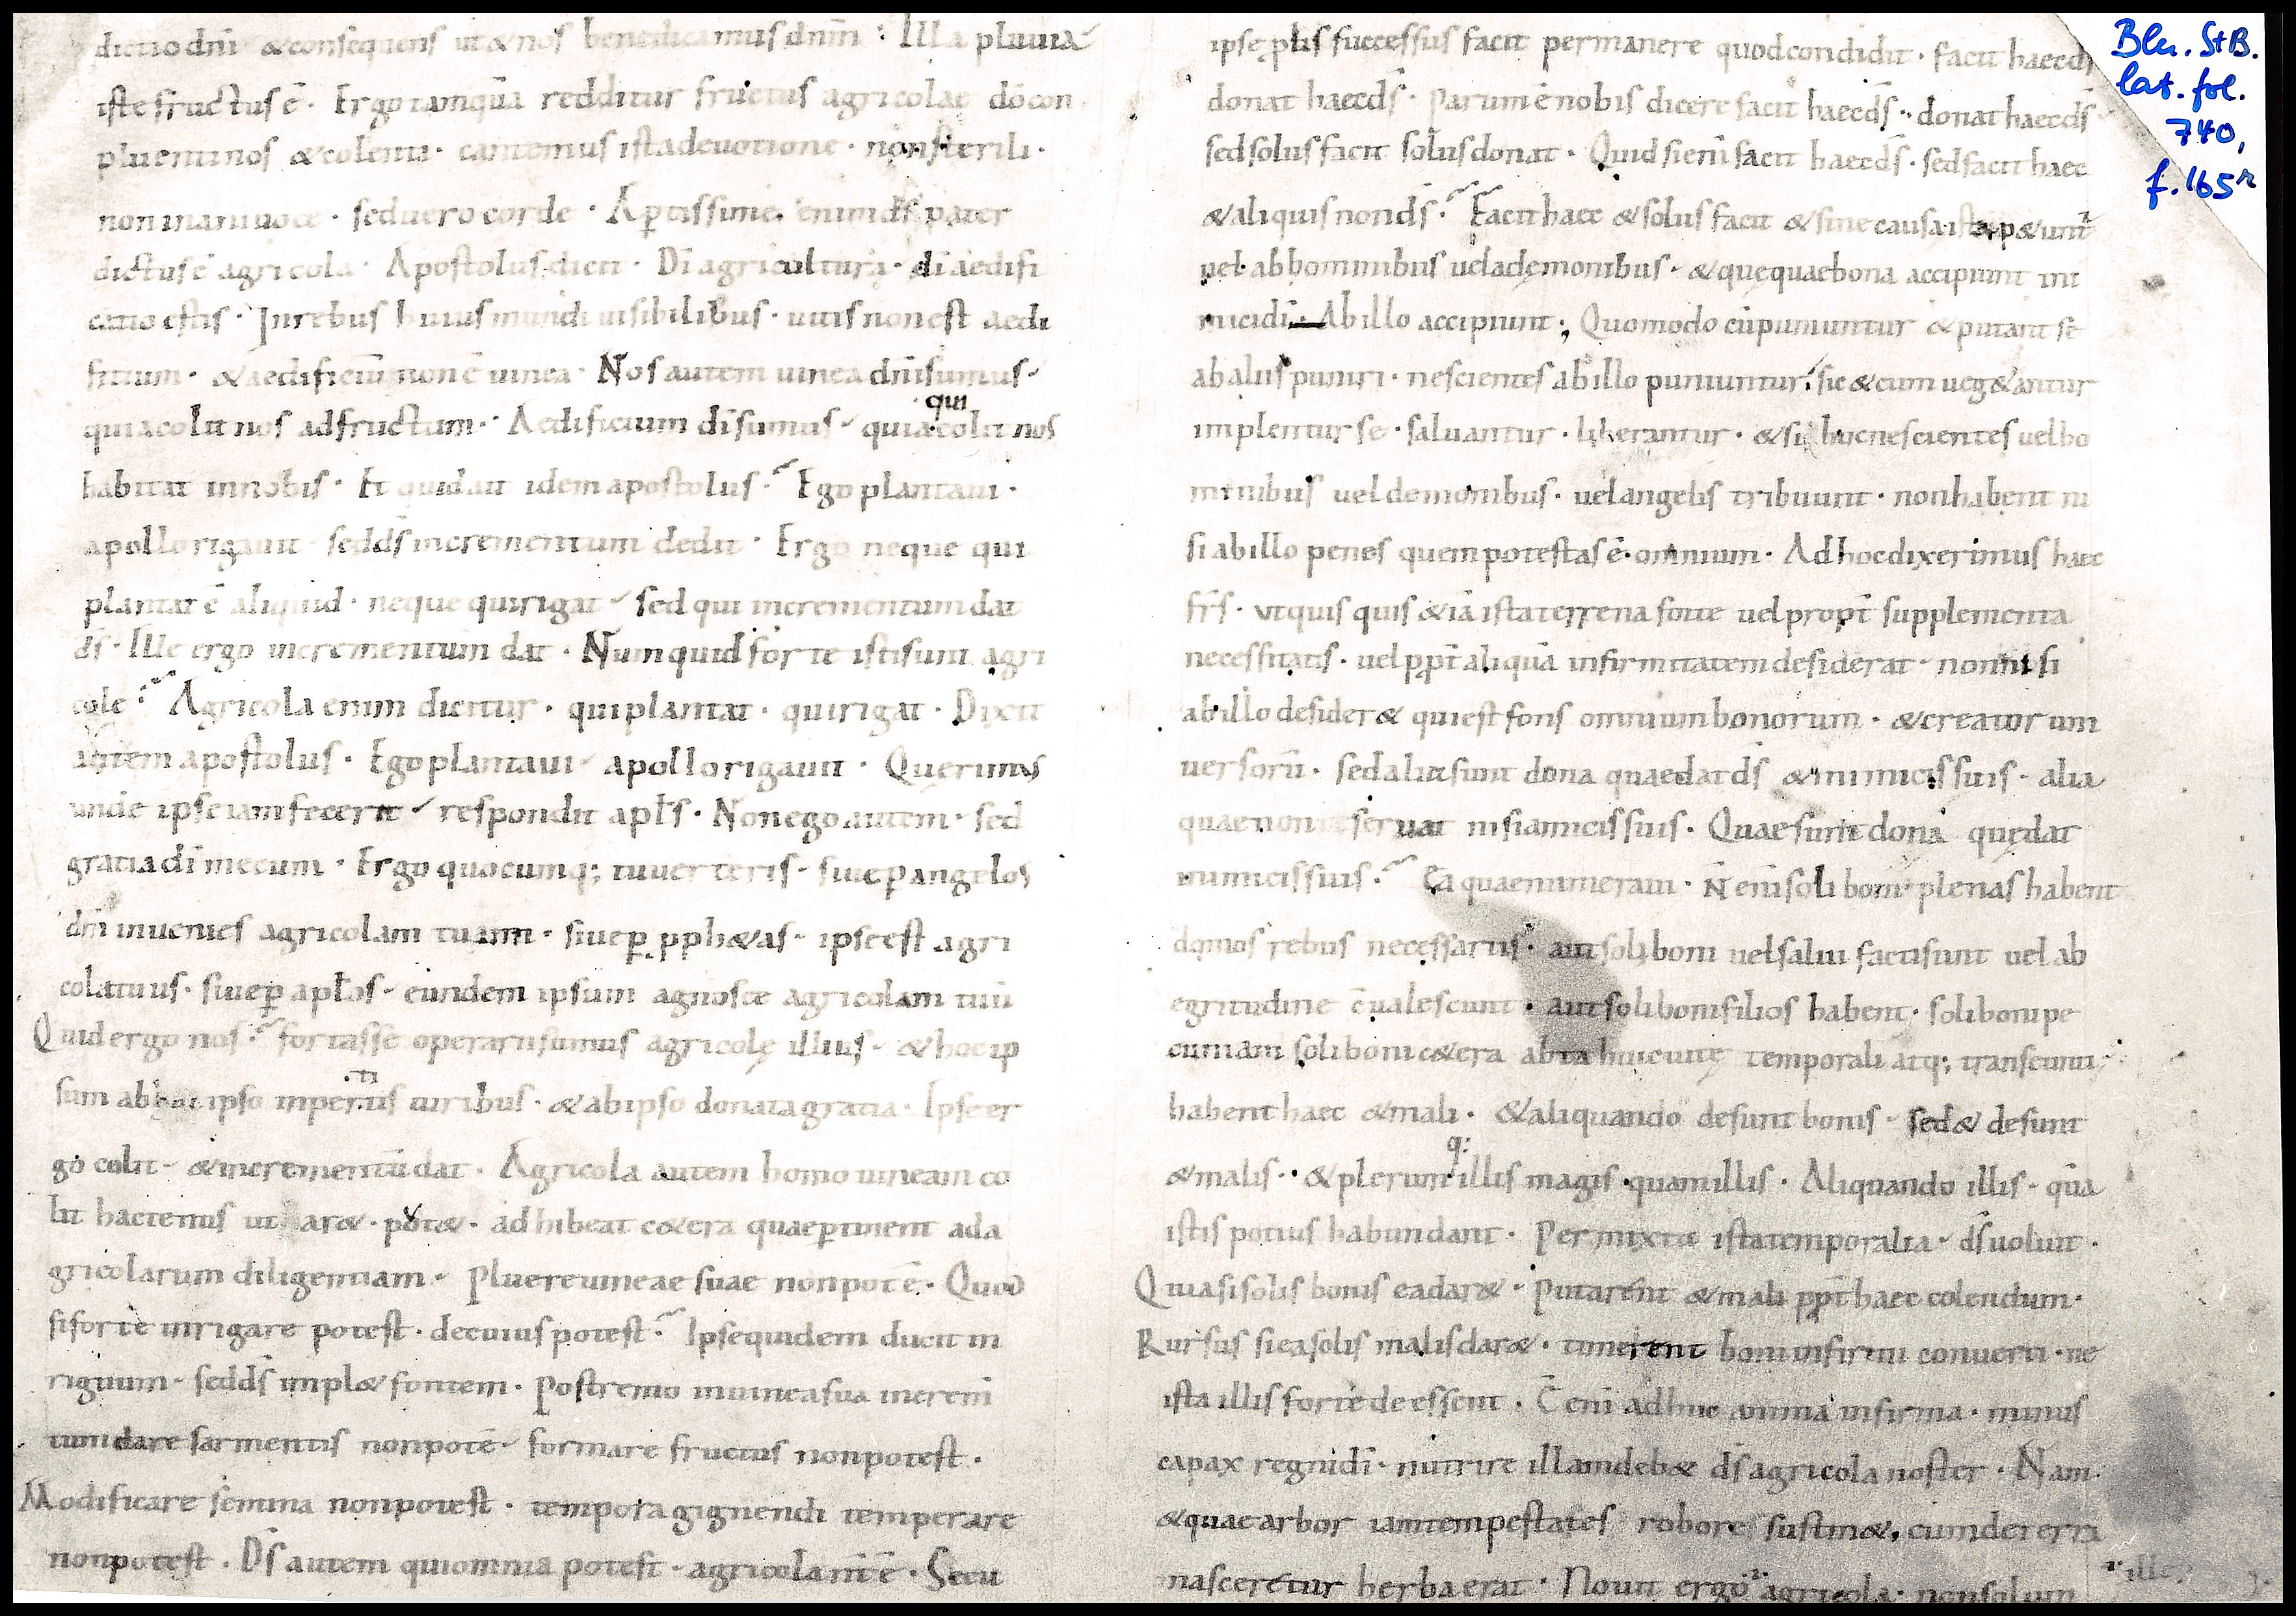 dictio dnī &consequens ut&nos benedicamus dnm̄ : Illa pluuia
iste fructus ē · Ergo tamquā redditur fructus agricolae dō con
pluenti nos &colenti · cantemus ista deuotione · non sterili ·
non inani uoce · sed uero corde · Aptissime enim ds̄ pater
dictus ē agricola · Apostolus dicit · Dī agricultura · dī aedifi
catio estis · In rebus huius mundi uisibilibus · uitis non est aedi
ficium · &aedificiū non ē uinea · Nos autem uinea dnī sumus ·
quia colit nos ad fructum · Aedificium dī sumus · quia colit nos
qui
habitat in nobis · Et quid ait idem apostolus · Ego plantaui ·
apollo rigauit · sed ds̄ incrementum dedit · Ergo neque qui
plantat ē aliquid · neque qui rigat · sed qui incrementum dat
ds̄ · Ille ergo incrementum dat · Numquid forte isti sunt agri
cole · Agricola enim dicitur · qui plantat · qui rigat · Dixit
autem apostolus · Ego plantaui · apollo rigauit · Querimus
unde ipse iam fecerit · respondit apl̄s · Non ego autem · sed
gratia dī mecum · Ergo quocumq; tu uerteris · siue p̱ angelos
dnī inuenies agricolam tuam · siue p̱ pph&as · ipse est agri
cola tuus · siue p̱ apl̄os · eundem ipsum agnosce agricolam tuū
Quid ergo nos · fortasse operarii sumus agricolę illius · &hoc ip
sum ab ipso inpertitis uiribus · &ab ipso donata gratia · Ipse er
go colit · &incrementū dat · Agricola autem homo uineam co
lit hactenus ut ar& · put& · adhibeat c&era quae p̱tinent ad a
gricolarum diligentiam · Pluere uineae suae non potē · Quod
si forte inrigare potest · de cuius potest · Ipse quidem ducit in
riguum · sed ds̄ impl& fontem · Postremo in uinea sua increm̄
tum dare sarmentis non potē · formare fructus non potest ·
Modificare semina non potest · tempora gignendi temperare
non potest · Ds̄ autem qui omnia potest · agricola nr̄ ē · Secu
ipse p̱ plis successus facit permanere quod condidit · facit haec ds̄
donat haec ds̄ · Parum ē nobis dicere facit haec ds̄ · donat haec ds̄
sed solus facit solus donat · Quid si enī facit haec ds̄ · sed facit haec
&aliquis non ds̄ · Facit haec &solus facit &sine causa ista p&unt̄
uel ab hominibus uel a dęmonibus · &quequae bona accipiunt ini
mici dī · Ab illo accipiunt · Quomodo cū puniuntur &putant se
ab aliis puniri · nescientes ab illo puniuntur · sic &cum ueg&antur
implentur se · saluantur · liberantur · &si huc nescientes uel ho
minibus uel demonibus · uel angelis tribuunt · non habent ni
si ab illo penes quem potestas ē omnium · Ad hoc dixerimus haec
frs̄ · ut quis quis &iā ista terrena forte uel propt̄ supplementa
necessitatis · uel ppt̄ aliquā infirmitatem desiderat · non nisi
ab illo desider& qui est fons omnium bonorum · &creator uni
uersorū · sed alia sunt dona quae dat ds̄ &inimicis suis · alia
quae non seruat nisi amicis suis · Quae sunt dona quę dat
inimicis suis · Ea quae numeraui · N̄ enī soli boni plenas habent
domos rebus necessariis · aut soli boni uel salui facti sunt uel ab
egritudine c̄ualescunt · aut soli boni filios habent · soli boni pe
cuniam soli boni c&era ab ta huic uitę temporali atq; transeunti
habent haec &mali · &aliquando desunt bonis · sed& desunt
q;
&malis · &plerum illis magis quam illis · Aliquando illis · quā
istis potius habundant · Permixta ista temporalia · ds̄ uoluit ·
Quia si solis bonis ea dar& · putarent &mali ppt̄ haec colendum ·
Rursus si ea solis malis dar& · timerent boni infirmi conuerti · ne
ista illis forte deessent · Ē enī adhuc anima infirma · minus
capax regni dī · nutrire illam deb& ds̄ agricola noster · Nam
&quae arbor iam tempestates robore sustin& · cum de terra
nasceretur herba erat · Nouit ergo agricola · non solum
ille
Bln. StB.
lat. fol.
740,
f. 165r